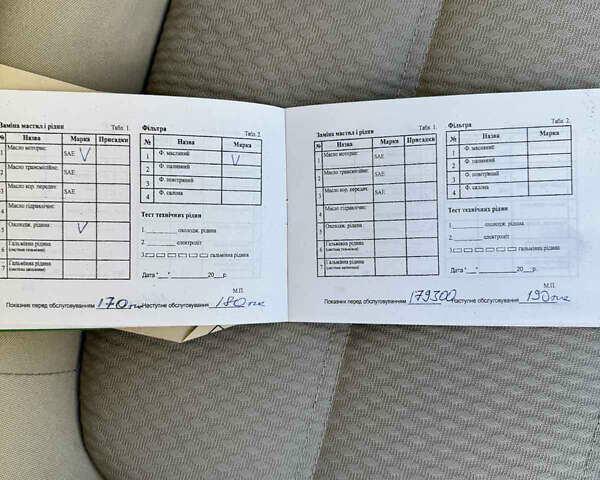 Заміна мастил і рідин Табл. 1.
№ Назва Марка Присадки
1 Масло моторне: SAE V
2 Масло трансмісійне: SAE
3 Масло кор. передач: SAE
4 Масло гідравлічне:
5 Охолодж. рідина: V
6 Гальмівна рідина
7 Гальмівна рідина
Фільтра Табл. 2.
№ Назва Марка
1 Ф. масляний V
2 Ф. паливний
3 Ф. повітряний
4 Ф. салона
Тест технічних рідин
1. охолодж. рідина
2. електроліт
3. гальмівна рідина
Дата "__"__________20___р.
М.П.
Показник перед обслуговуванням 170 тис Наступне обслуговування 180 тис
Заміна мастил і рідин Табл. 1.
№ Назва Марка Присадки
1 Масло моторне: SAE
2 Масло трансмісійне: SAE
3 Масло кор. передач: SAE
4 Масло гідравлічне:
5 Охолодж. рідина:
6 Гальмівна рідина
7 Гальмівна рідина
Фільтра Табл. 2.
№ Назва Марка
1 Ф. масляний
2 Ф. паливний
3 Ф. повітряний
4 Ф. салона
Тест технічних рідин
1. охолодж. рідина
2. електроліт
3. гальмівна рідина
Дата "__"__________20___р.
М.П.
Показник перед обслуговуванням 179300 Наступне обслуговування 190 тис